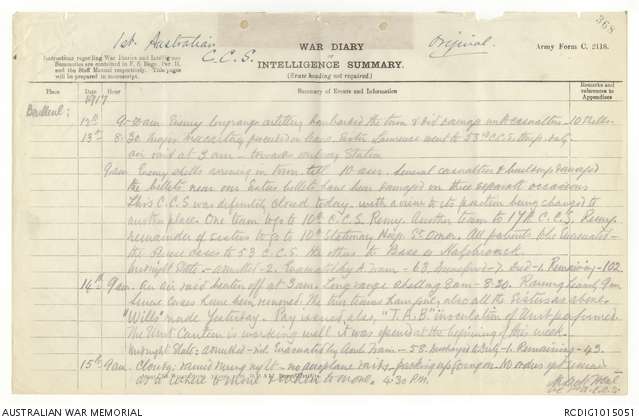 368
1st. Australian
C.C.S.
WAR DIARY
or
INTELLIGENCE SUMMARY.
(Erase heading not required.)
Original.
Army Form C. 2118.
Instructions regarding War Diaries and Intelligence
Summaries are contained in F. S. Regs., Part II.
and the Staff Manual respectively. Title pages
will be prepared in manuscript.
Place
Date
Hour
Summary of Events and Information
Remarks and
references to
Appendices
1917
Bailleul:
12th 9-30am Enemy longrange artillery bombarded the town & did damage with casualties. 10 Shells.
13th 8-30 Major proceeded on leave. Sister Lawrence went to 53rd C.C.S. duty
air raid at 3 am - towards railway Station
9am Enemy shells arriving in town till 10 am. Several casualties & buildings damaged
the billets near our Sisters billets have been damaged on three separate occasions
This C.C.S was definitely closed today, with a view to its position being changed to
another place. One team to go to 10th C.C.S. Remy. Another team to 17th C.C.S. Remy
remainder of sisters to go to 10th Stationary Hosp. St Omer. All patients to be Evacuated -
the cases to 53 C.C.S. the others to Base
midnight State - admitted - 2. Evacuated by A Train - 63. - 7. Died - 1. Remaining - 102.
14th 9am. An air raid beaten off at 3am. Long range shelling 8am - 8.30. Raining 9am
Severe cases have been removed. The two teams have gone, also all the Sisters as above.
"Wills" made Yesterday. Pay issued, also, "T.A.B" inoculation of Unit performed.
The Unit Canteen is working well it was opened at the beginning of this week.
midnight State: admitted - nil. Evacuated by Amb Train - 58. to Duty - 1. Remaining - 43.
15th 9am Cloudy, rained during night - no aeroplane raids. packing up going on. No orders yet received
as to where to move & when to move. 4:30 P.M.